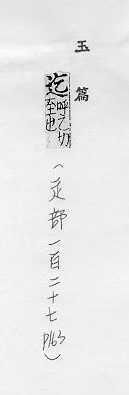 玉篇
迄呼乞切
至也
(辵部一百二十七 P163)